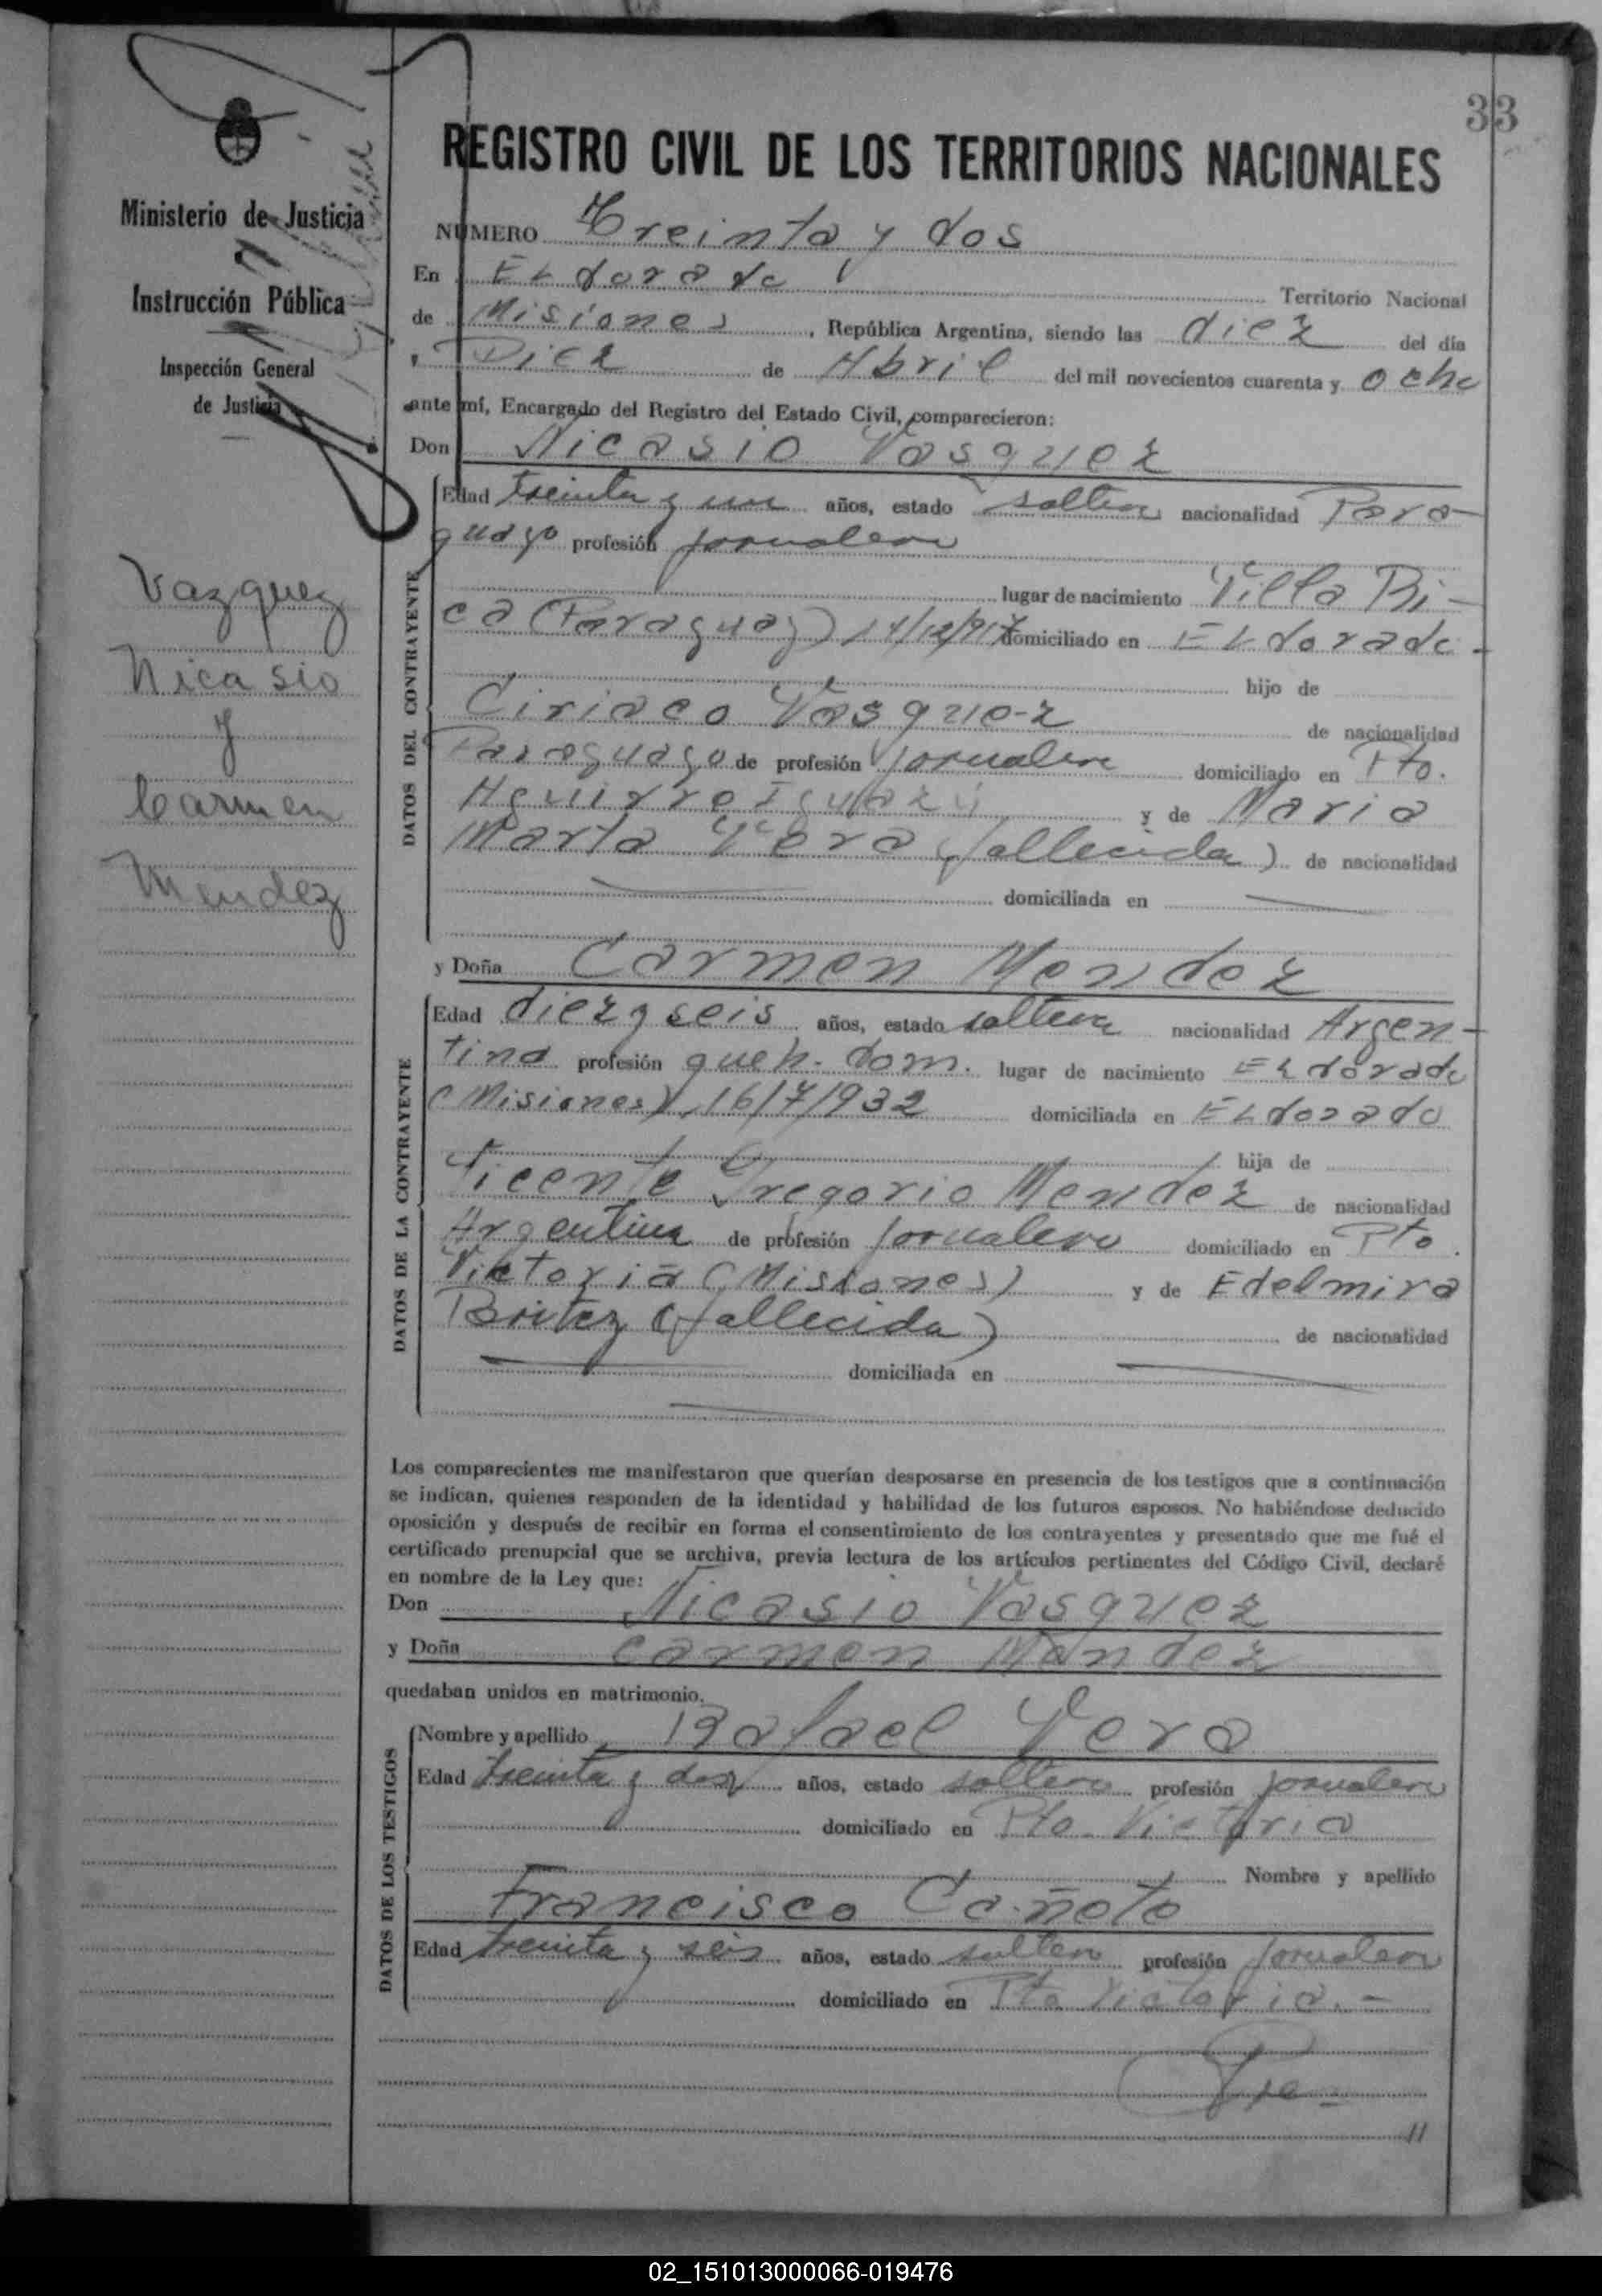 33
Ministerio de Justicia
Instrucción Pública
Inspección General
de Justicia
Vazquez
Nicasio
y
Carmen
Mendez
REGISTRO CIVIL DE LOS TERRITORIOS NACIONALES
NÚMERO Treinta y dos
En ELdorado Territorio Nacional
de Misiones, República Argentina, siendo las diez del día
Diez de Abril del mil novecientos cuarenta y ocho
ante mí, Encargado del Registro del Estado Civil, comparecieron:
Don Nicasio Vasquez
DATOS DEL CONTRAYENTE
Edad treinta y un años, estado soltero nacionalidad Para-
guayo profesión jornalero
lugar de nacimiento Villa Ri-
ca (Paraguay) 14/12/917 domiciliado en ELdorado-
hijo de
Ciriaco Vasquez de nacionalidad
Paraguayo de profesión jornalero domiciliado en Pto.
Aguirre Iguazú y de Maria
Marta Vera (fallecida) de nacionalidad
domiciliada en
y Doña Carmen Mendez
DATOS DE LA CONTRAYENTE
Edad diez y seis años, estado soltera nacionalidad Argen-
tina profesión queh. dom. lugar de nacimiento ELdorado
(Misiones), 16/7/932 domiciliada en ELdorado
hija de
Vicente Gregorio Mendez de nacionalidad
Argentina de profesión jornalero domiciliado en Pto.
Victoria (Misiones) y de Edelmira
Britez (fallecida) de nacionalidad
domiciliada en
Los comparecientes me manifestaron que querían desposarse en presencia de los testigos que a continuación
se indican, quienes responden de la identidad y habilidad de los futuros esposos. No habiéndose deducido
oposición y después de recibir en forma el consentimiento de los contrayentes y presentado que me fué el
certificado prenupcial que se archiva, previa lectura de los artículos pertinentes del Código Civil, declaré
en nombre de la Ley que:
Don Nicasio Vasquez
y Doña Carmen Mendez
quedaban unidos en matrimonio.
DATOS DE LOS TESTIGOS
Nombre y apellido Rafael Vera
Edad treinta y dos años, estado soltero profesión jornalero
domiciliado en Pto. Victoria
Nombre y apellido
Francisco Cañete
Edad treinta y seis años, estado soltero profesión jornalero
domiciliado en Pto Victoria.-
//
02_151013000066-019476